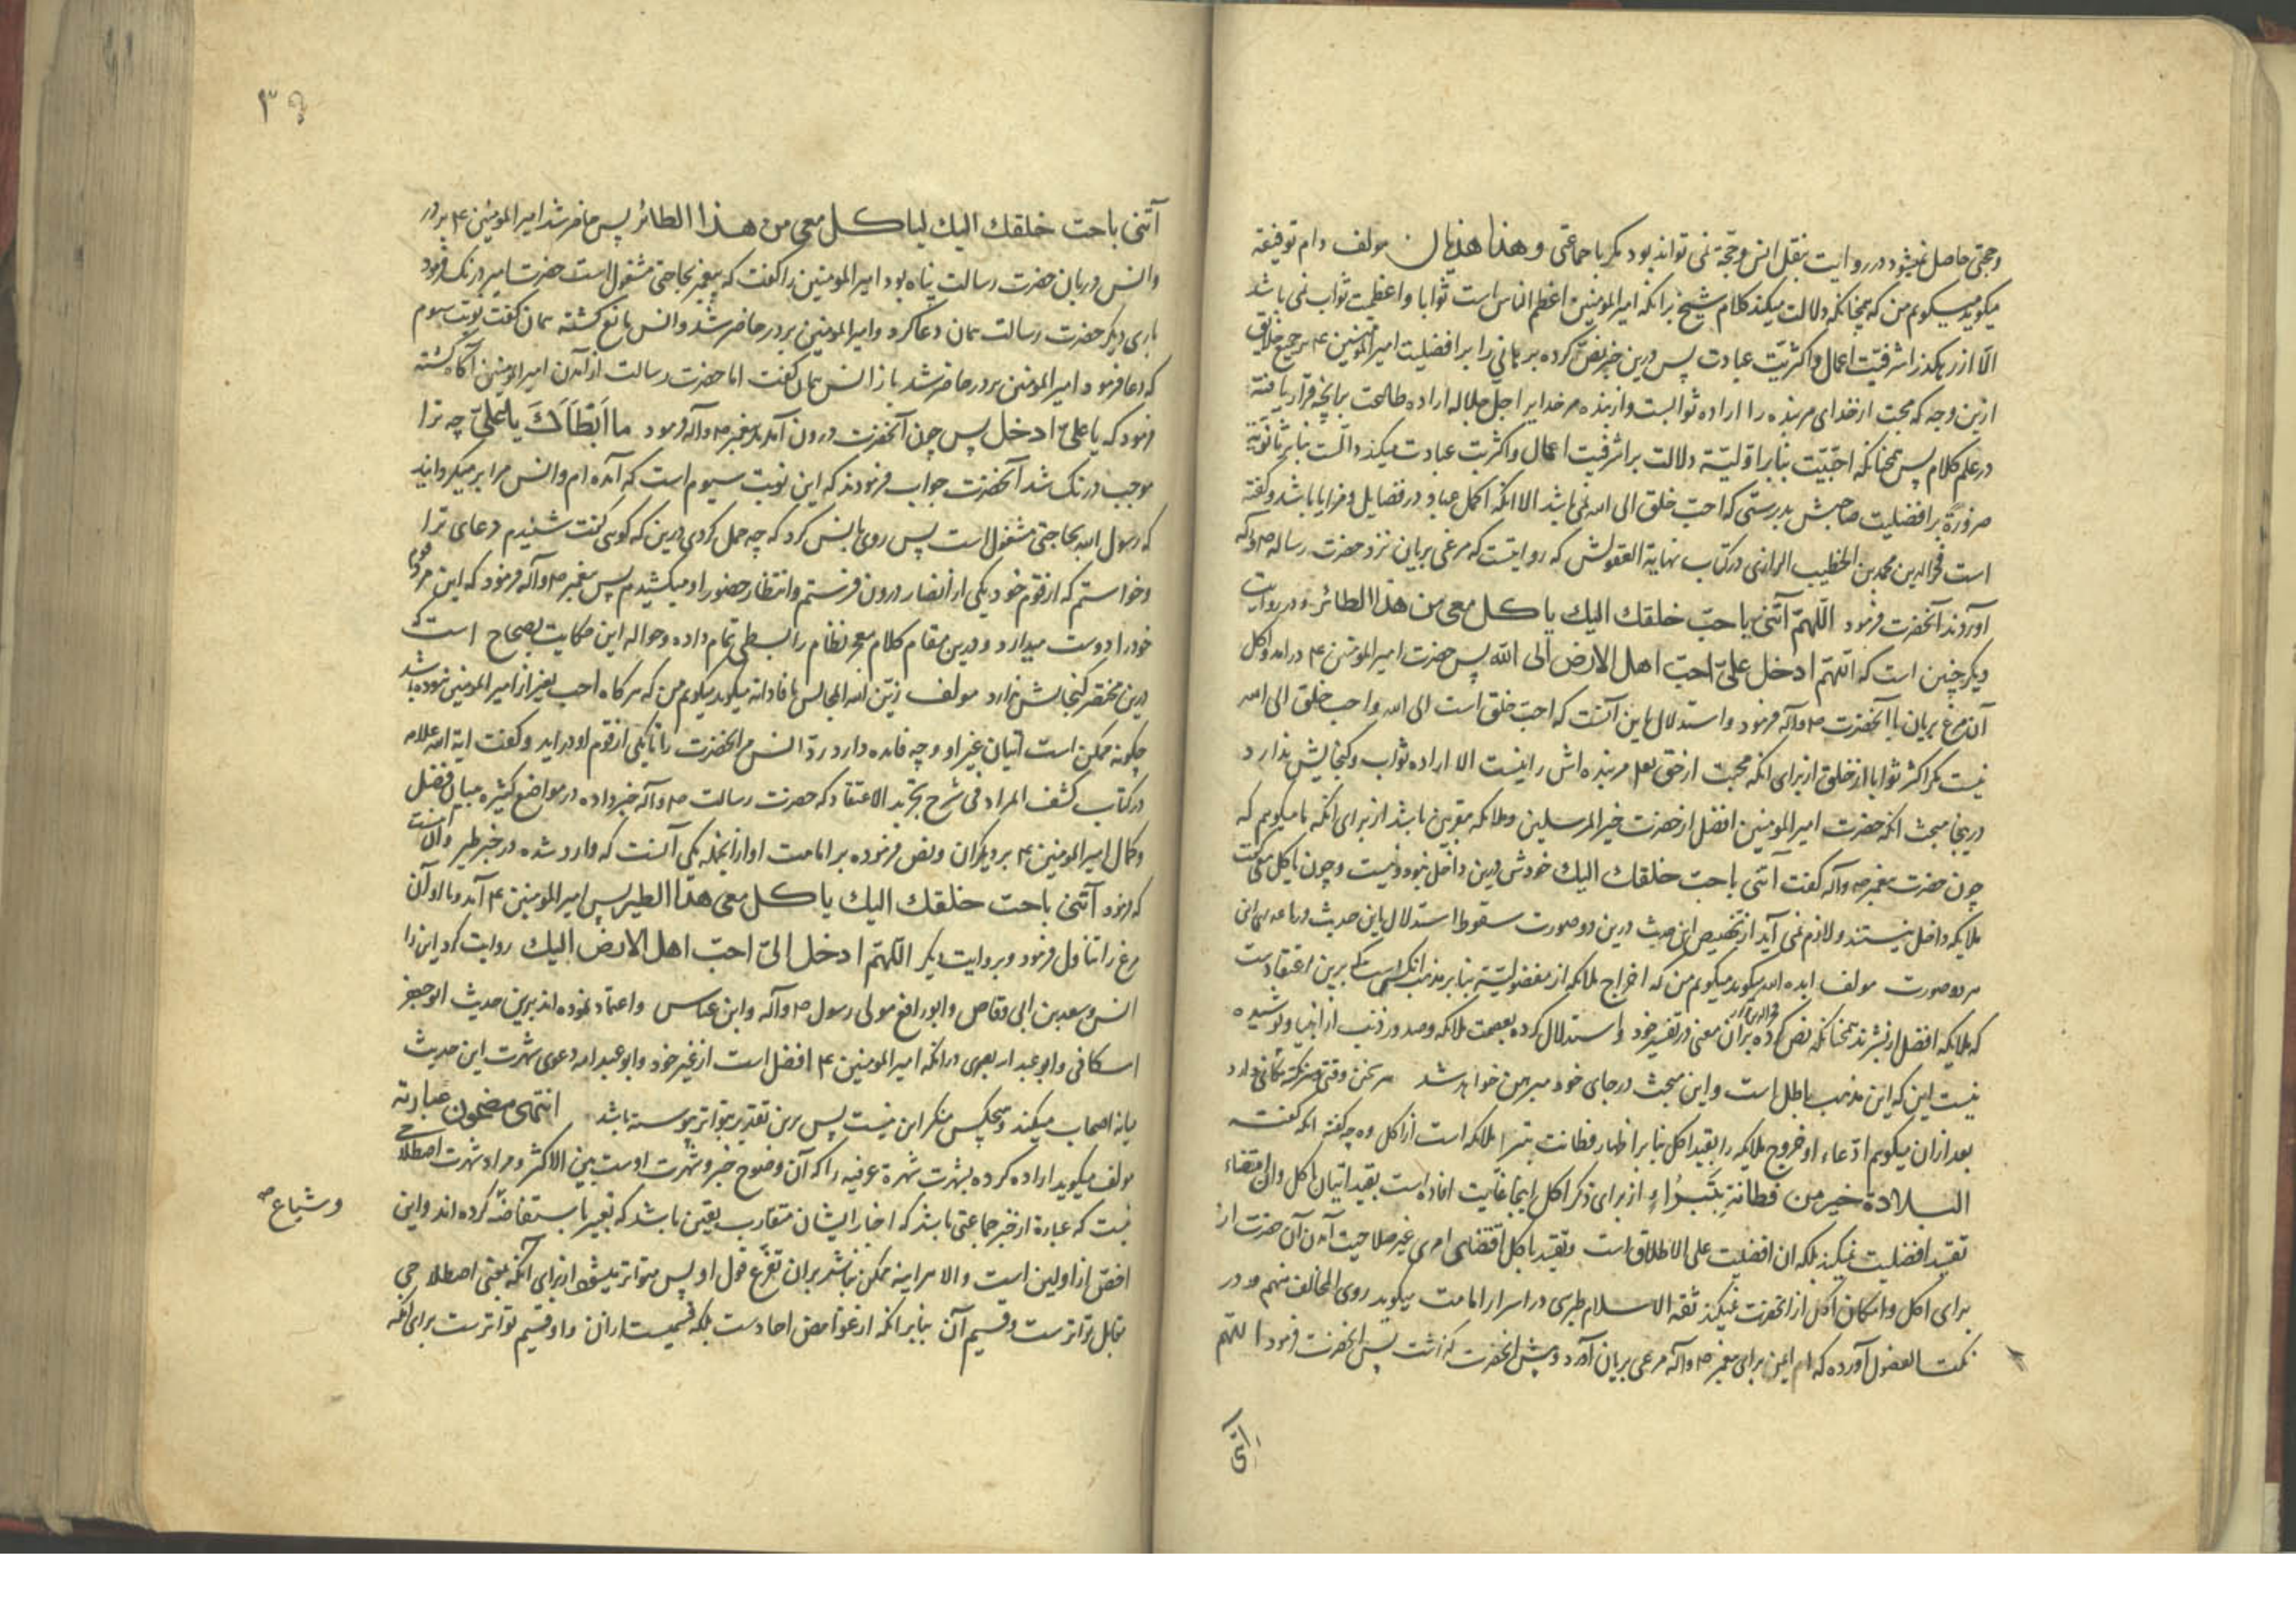 وحجتی حاصل نمیشود در روایت بنقل انس وحجة نمی تواند بود مکر با جماعتی وهذا هذیان مولف دام توفیقه
میکوید میکویم من که همچنانکه دلالت میکند کلام شیخ برانکه امیرالمومنین اعظم الناس است ثوابا واعظمیت ثواب نمی باشد
الّا از رهکذر اشرفیّت اعمال واکثریّت عبادت پس درین خبر نصّ کرده بر یاتی را بر افضلیت امیرالمومنین ۴ بر جمیع خلایق
ازین وجه که محبت از خدای مر بنده را اراده ثوابست واز بنده مر خدایرا جلّ جلاله اراده طاعت بر آنچه قرار یافته
در علم کلام پس همچنانکه احبّیّت بنا بر اوّلیّة دلالت بر اشرفیت اعمال واکثریت عبادت میکند دالّست بنا بر ثانویّة
ضرورةً بر افضلیت صاحبش بدرستی که احبّ خلق الی الله نمی باشد الا انکه اکمل عباد در فضایل ومزایا باشد وکفته
است فخرالدین محمد بن الخطیب الرازی در کتاب نهایة العقولش که روایتست که مرغی بریان نزد حضرت رساله ص واله
آوردند آنحضرت فرمود اللّهمّ آتنی باحبّ خلقك الیك یاکل معی من هذا الطائر ودر روایت
دیکر چنین است که اللّهمّ ادخل علیّ احبّ اهل الارض الی الله پس حضرت امیر المومنین ۴ درامد واکل
آن مرغ بریان با آنحضرت ص وآله فرمود واستدلال باین آنست که احبّ خلق است الی الله واحب خلق الی الله
نیست مکر اکثر ثوابا از خلق از برای انکه محبت از حق تعل مر بنده اش را نیست الا اراده ثواب وکنجایش ندارد
دریجا مبحث انکه حضرت امیر المومنین افضل از حضرت خیر المرسلین وملائکه مقربین باشد از برای انکه ما میکویم که
چون حضرت پیغمبر ص وآله کفت آتنی باحبّ خلقك الیك خودش درین داخل نبوده ونیست وچون یاکل معی کفت
ملایکه داخل نیستند ولازم نمی آید از تخصیص این حدیث درین دو صورت سقوط استدلال باین حدیث در ماعدای این
هر دو صورت مولف ایده الله میکوید میکویم من که اخراج ملائکه از مفضولیّة بنا بر مذهب انکس است که برین اعتقادست
که ملایکه افضل از بشرند همچنانکه نص کرده بر آن فخرالدین رازی معنی در تفسیر خود واستدلال کرده بعصمت ملائکه وصدور ذنب از انبیا وپوشیده
نیست این که این مذهب باطل است واین مبحث در جای خود مبرهن خواهد شد هر سخن وقتی وهر نکته مکانی دارد
بعد ازان میکویم ادّعاء او خروج ملایکه را بقید اکل بنا بر اظهار فطانت بترا ملائکه است از اکل وه چه کفته انکه کفته
البلادة خیر من فطانةٍ بتراءٍ از برای ذکر اکل اینجا غایت افاده است بقید اتیان اکل وان اقتضاء
تقیید افضلیت نمیکند بلکه ان افضلیت علی الاطلاق است وتقیید باکل اقتضای امری غیر صلاحیت آمدن آن حضرت از
برای اکل وامکان اکل از انحضرت نمیکند ثقة الاسلام طبرسی در اسرار امامت میکوید روی المخالف منهم ودر
نکت الفصول آورده که ام ایمن برای پیغمبر ص وآله مرغی بریان آورد وپیش انحضرت کذاشت پس انحضرت فرمود اللّهمّ
آتنی
۳۹
آتنی باحبّ خلقك الیك لیاکل معی من هذا الطائر پس حاضر شد امیر المومنین ۴ بر در
وانس دربان حضرت رسالت پناه بود امیر المومنین را کفت که پیغمبر بحاجتی مشغول است حضرت امیر درنک فرمود
باری دیکر حضرت رسالت همان دعا کرد وامیر المومنین بر در حاضر شد وانس مانع کشته همان کفت نوبت سیوم
که دعا فرمود امیر المومنین بر در حاضر شد باز انس همان کفت اما حضرت رسالت از آمدن امیرالمومنین آکاه کشته
فرمود که یا علیّ ادخل پس چون آنحضرت درون آمد پیغمبر ص وآله فرمود ما ابطأك یا علیّ چه ترا
موجب درنک شد آنحضرت جواب فرمودند که این نوبت سیوم است که آمده ام وانس مرا بر میکرداند
که رسول الله بحاجتی مشغول است پس روی بانس کرد که چه حمل کردی درین که کوی کفت شنیدم دعای ترا
وخواستم که از قوم خود یکی از انصار درون فرستم وانتظار حضور او میکشیدم پس پیغمبر ص وآله فرمود که این مرد قوم
خود را دوست میدارد ودرین مقام کلام معجز نظام را بسطی تمام داده وحواله این حکایت بصحاح است که
درین مختصر کنجایش ندارد مولف زیّن الله المجالس بافاداته میکوید میکویم من که هرکاه احب بغیر از امیر المومنین نبوده باشد
چکونه ممکن است اتیان غیر او وچه فایده دارد ردّ انس مر انحضرت را تا یکی از قوم او دراید وکفت ایة الله علامه
در کتاب کشف المراد فی شرح تجرید الاعتقاد که حضرت رسالت ص وآله خبر داده در مواضع کثیره به بیان فضل
وکمال امیر المومنین ۴ بر دیکران ونص فرموده بر امامت او ازانجمله یکی آنست که وارد شده در خبر طیر وآن اینست
که فرمود آتنی باحبّ خلقك الیك یاکل معی هذا الطیر پس امیر المومنین ۴ آمد وبا او آن
مرغ را تناول فرمود وبروایت دیکر اللّهمّ ادخل الیّ احبّ اهل الارض الیك روایت کرد این را
انس وسعد بن ابی وقاص وابو رافع مولی رسول ص وآله وابن عباس واعتماد نموده اند برین حدیث ابو جعفر
اسکافی وابو عبدالله بصری در انکه امیر المومنین ۴ افضل است از غیر خود وابو عبدالله دعوی شهرت این حدیث
میانه اصحاب میکند وهیچکس منکر این نیست پس برین تقدیر بتواتر پیوسته باشد انتهی مضمون عبارته
مولف میکوید اراده کرده بشهرت شهرة عرفیه را که آن وضوح خبر وشهرت اوست بین الاکثر ومراد شهرت اصطلاحی
وشیاع صه
نیست که عبارة از خبر جماعتی باشد که اخبار ایشان متقارب یقین باشد که تعبیر باستفاضه کرده اند واین
اخصّ از اولین است والا هر اینه ممکن نباشد بران تفرّع قول او پس متواتر میشود از برای آنکه بمعنی اصطلاحی
مقابل تواترست وقسیم آن بنا بر انکه از غوامض احادست بلکه قسمیست ازان واو قسیم تواترست برای انکه